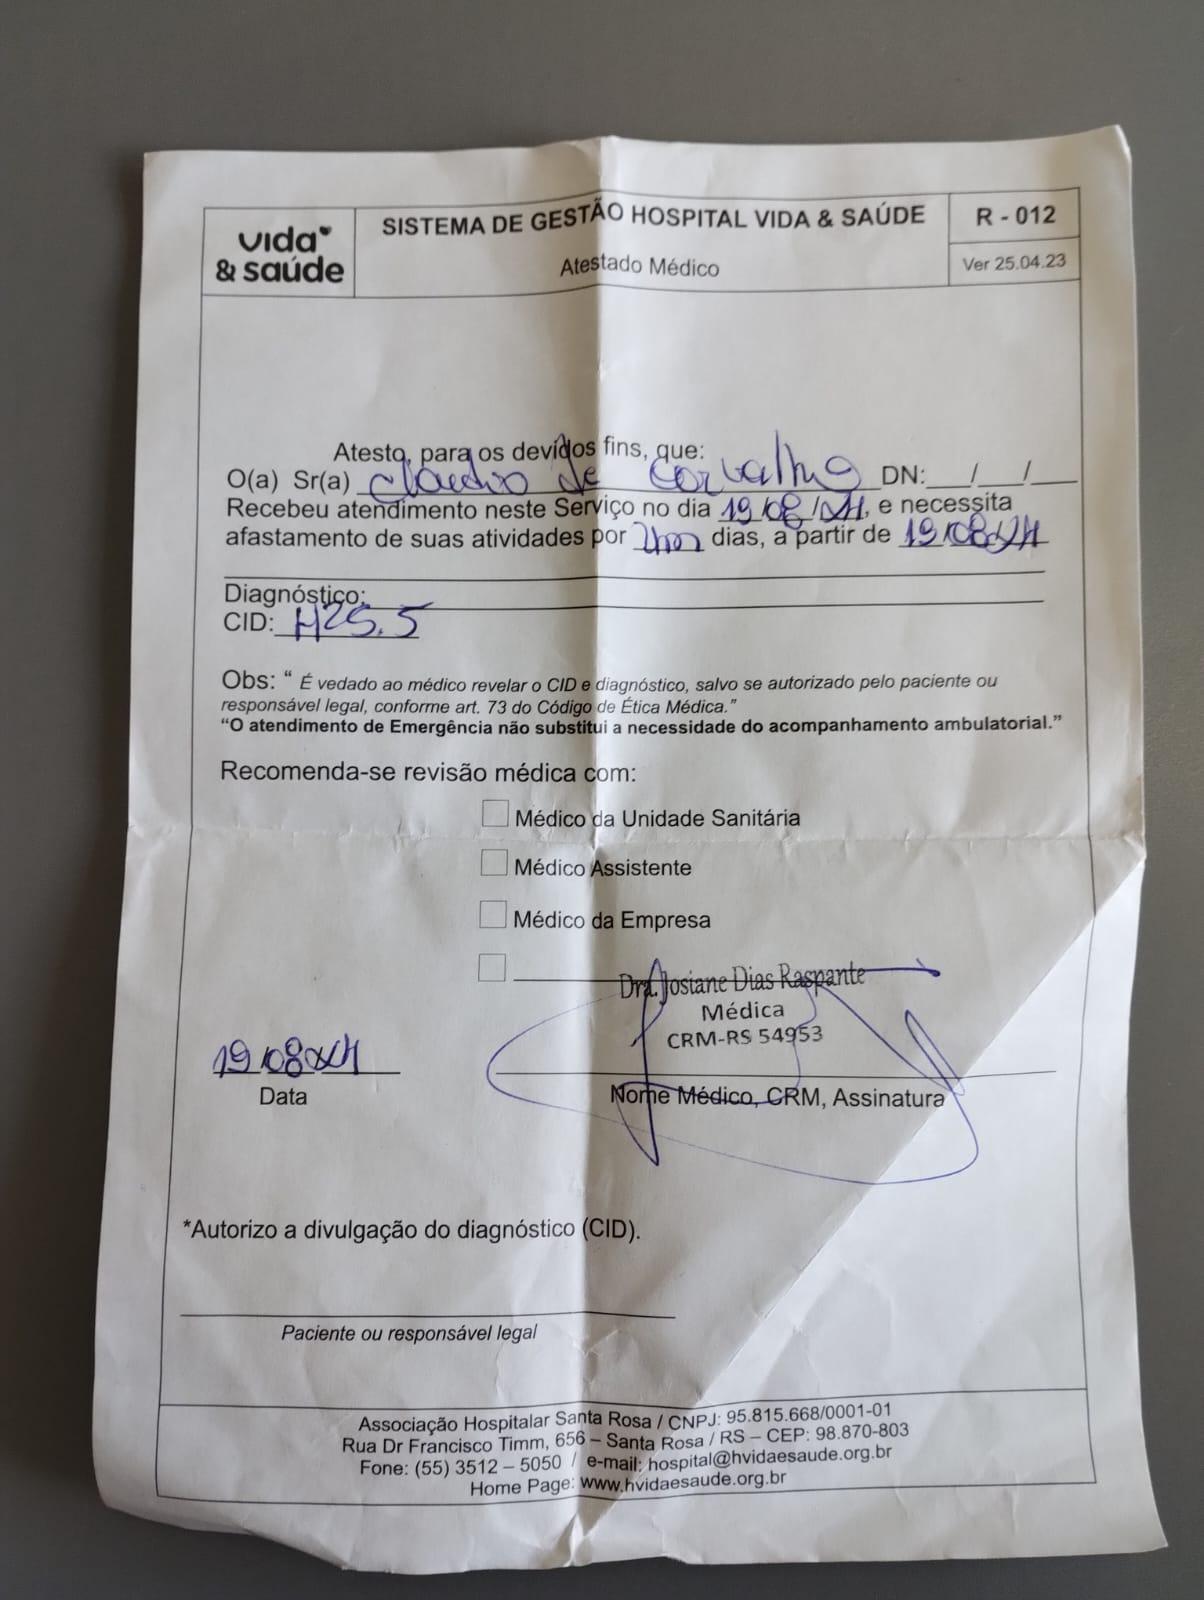 vida & saúde
SISTEMA DE GESTÃO HOSPITAL VIDA & SAÚDE
Atestado Médico
R - 012
Ver 25.04.23
Atesto, para os devidos fins, que:
O(a) Sr(a) Claudio de Carvalho DN: __/__/__
Recebeu atendimento neste Serviço no dia 19/08/24, e necessita
afastamento de suas atividades por dias, a partir de 19/08/24
Diagnóstico:
CID: H25.5
Obs: “ É vedado ao médico revelar o CID e diagnóstico, salvo se autorizado pelo paciente ou
responsável legal, conforme art. 73 do Código de Ética Médica.”
“O atendimento de Emergência não substitui a necessidade do acompanhamento ambulatorial.”
Recomenda-se revisão médica com:
Médico da Unidade Sanitária
Médico Assistente
Médico da Empresa
Dra. Josiane Dias Raspante
Médica
CRM-RS 54953
19/08/24
Data
Nome Médico, CRM, Assinatura
*Autorizo a divulgação do diagnóstico (CID).
Paciente ou responsável legal
Associação Hospitalar Santa Rosa / CNPJ: 95.815.668/0001-01
Rua Dr Francisco Timm, 656 – Santa Rosa / RS – CEP: 98.870-803
Fone: (55) 3512 – 5050 / e-mail: hospital@hvidaesaude.org.br
Home Page: www.hvidaesaude.org.br